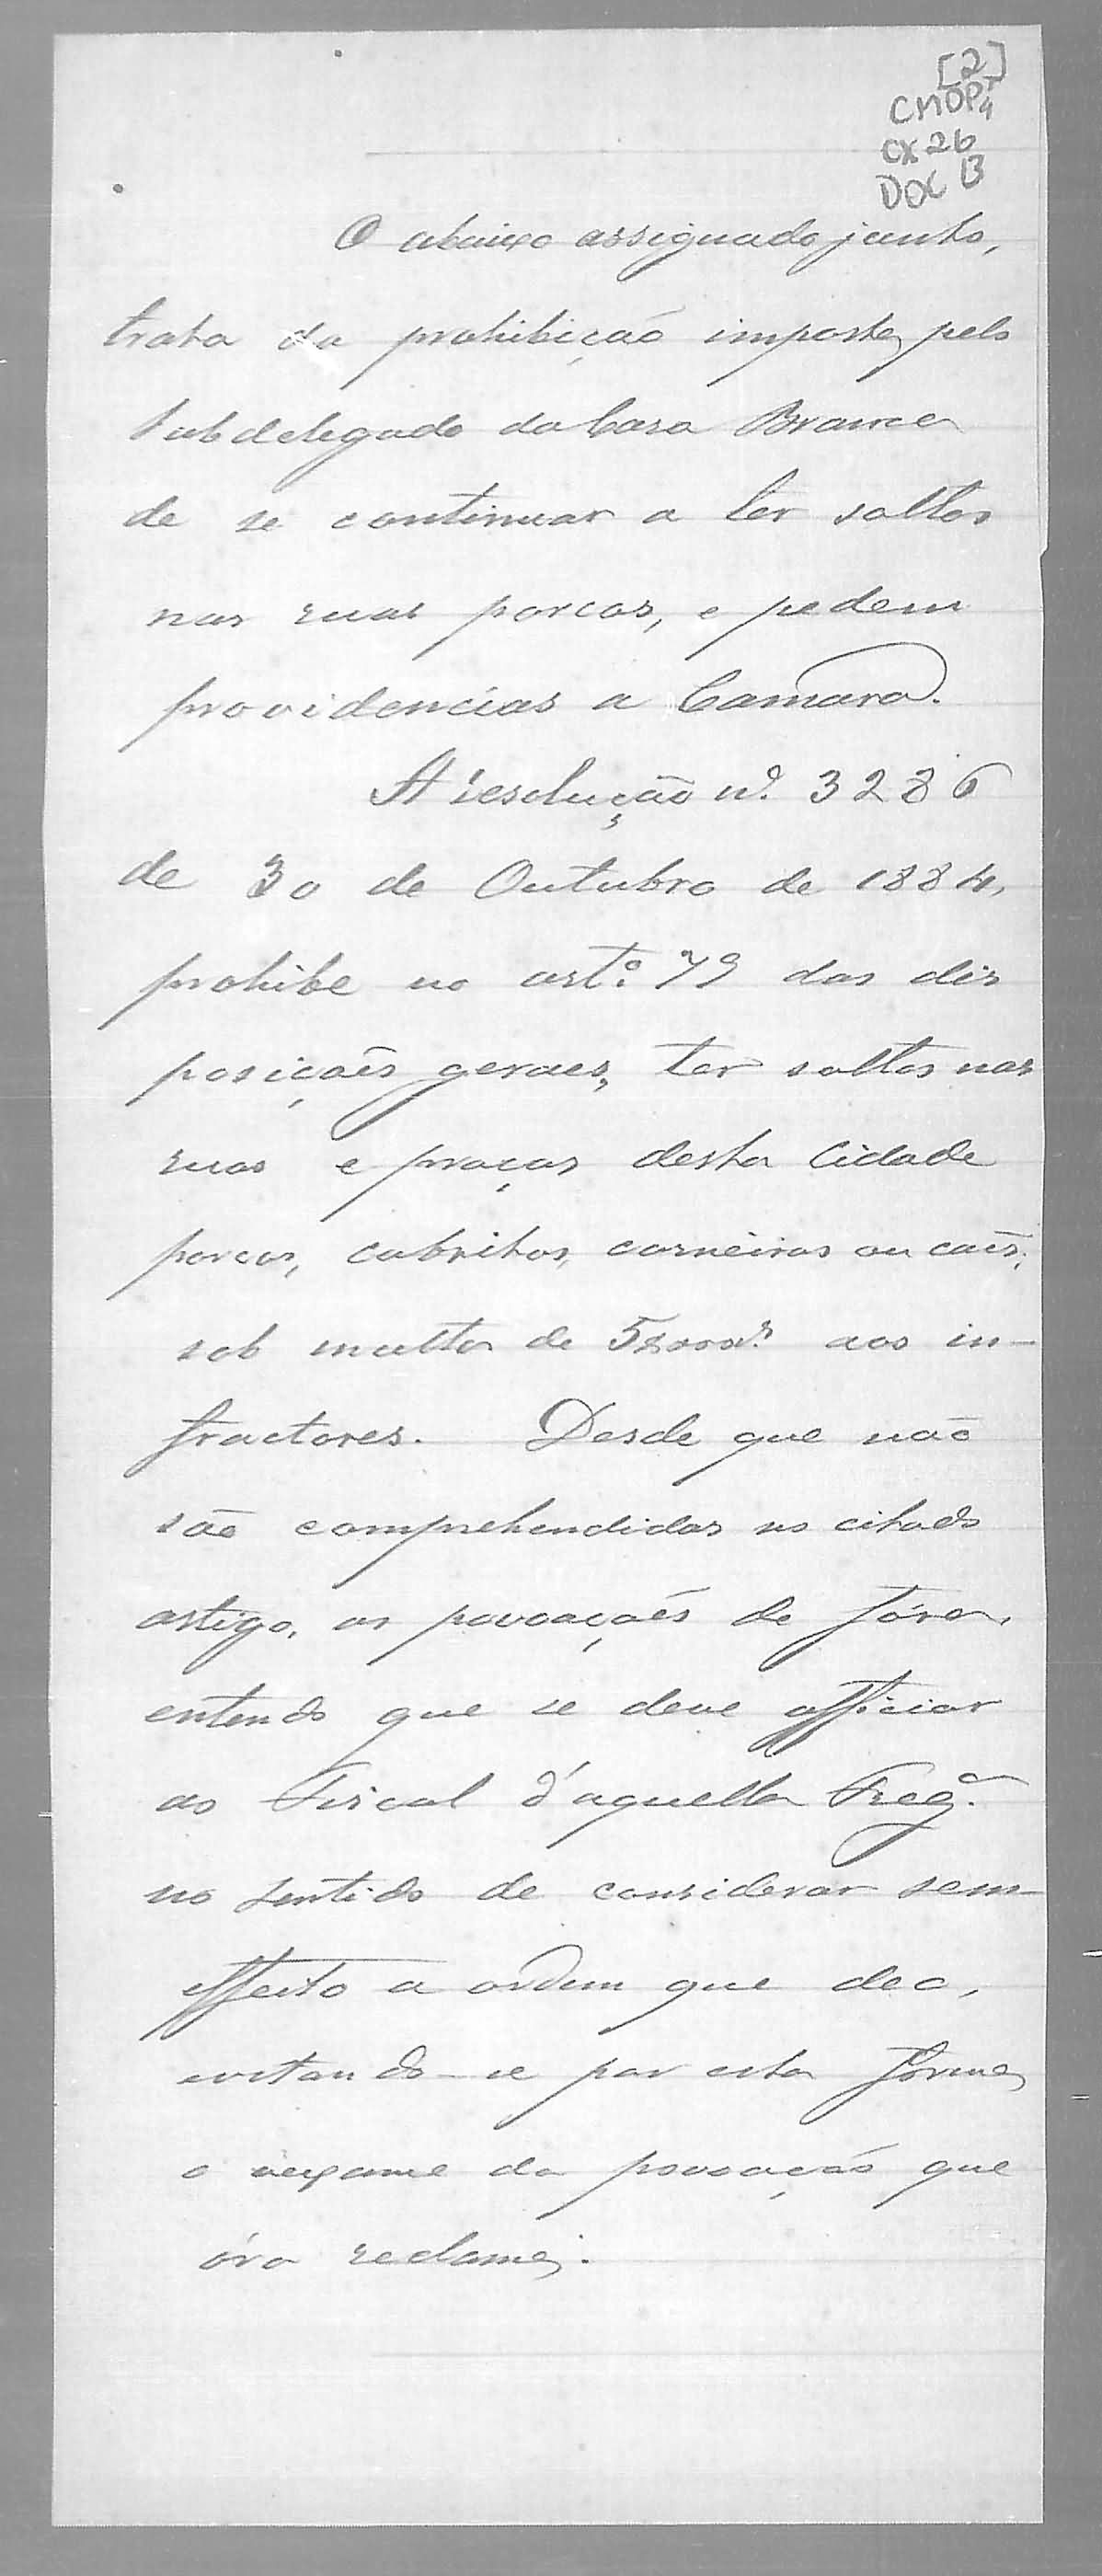 [2]
CMOP
CX 26
DOC 13
O abaixo assignado junto,
trata da prohibição imposta pelo
Subdelegado da Casa Branca
de se continuar a ter soltos
nas ruas porcos, e pedem
providencias a Camara.
A resolução nº. 3286
de 30 de Outubro de 1884,
prohibe no artº. 79 das dis
posições geraes, ter soltos nas
ruas e praças desta Cidade
porcos, cabritos, carneiros ou cães,
sob multa de 5$000rs aos in-
fractores. Desde que não
são comprehendidas no citado
artigo, as povoações de fóra,
entendo que se deve officiar
ao Fiscal d'aquella Fregª.
no sentido de considerar sem
effeito a ordem que deo,
evitando-se por esta fórma
o vexame da povoação que
óra reclama.